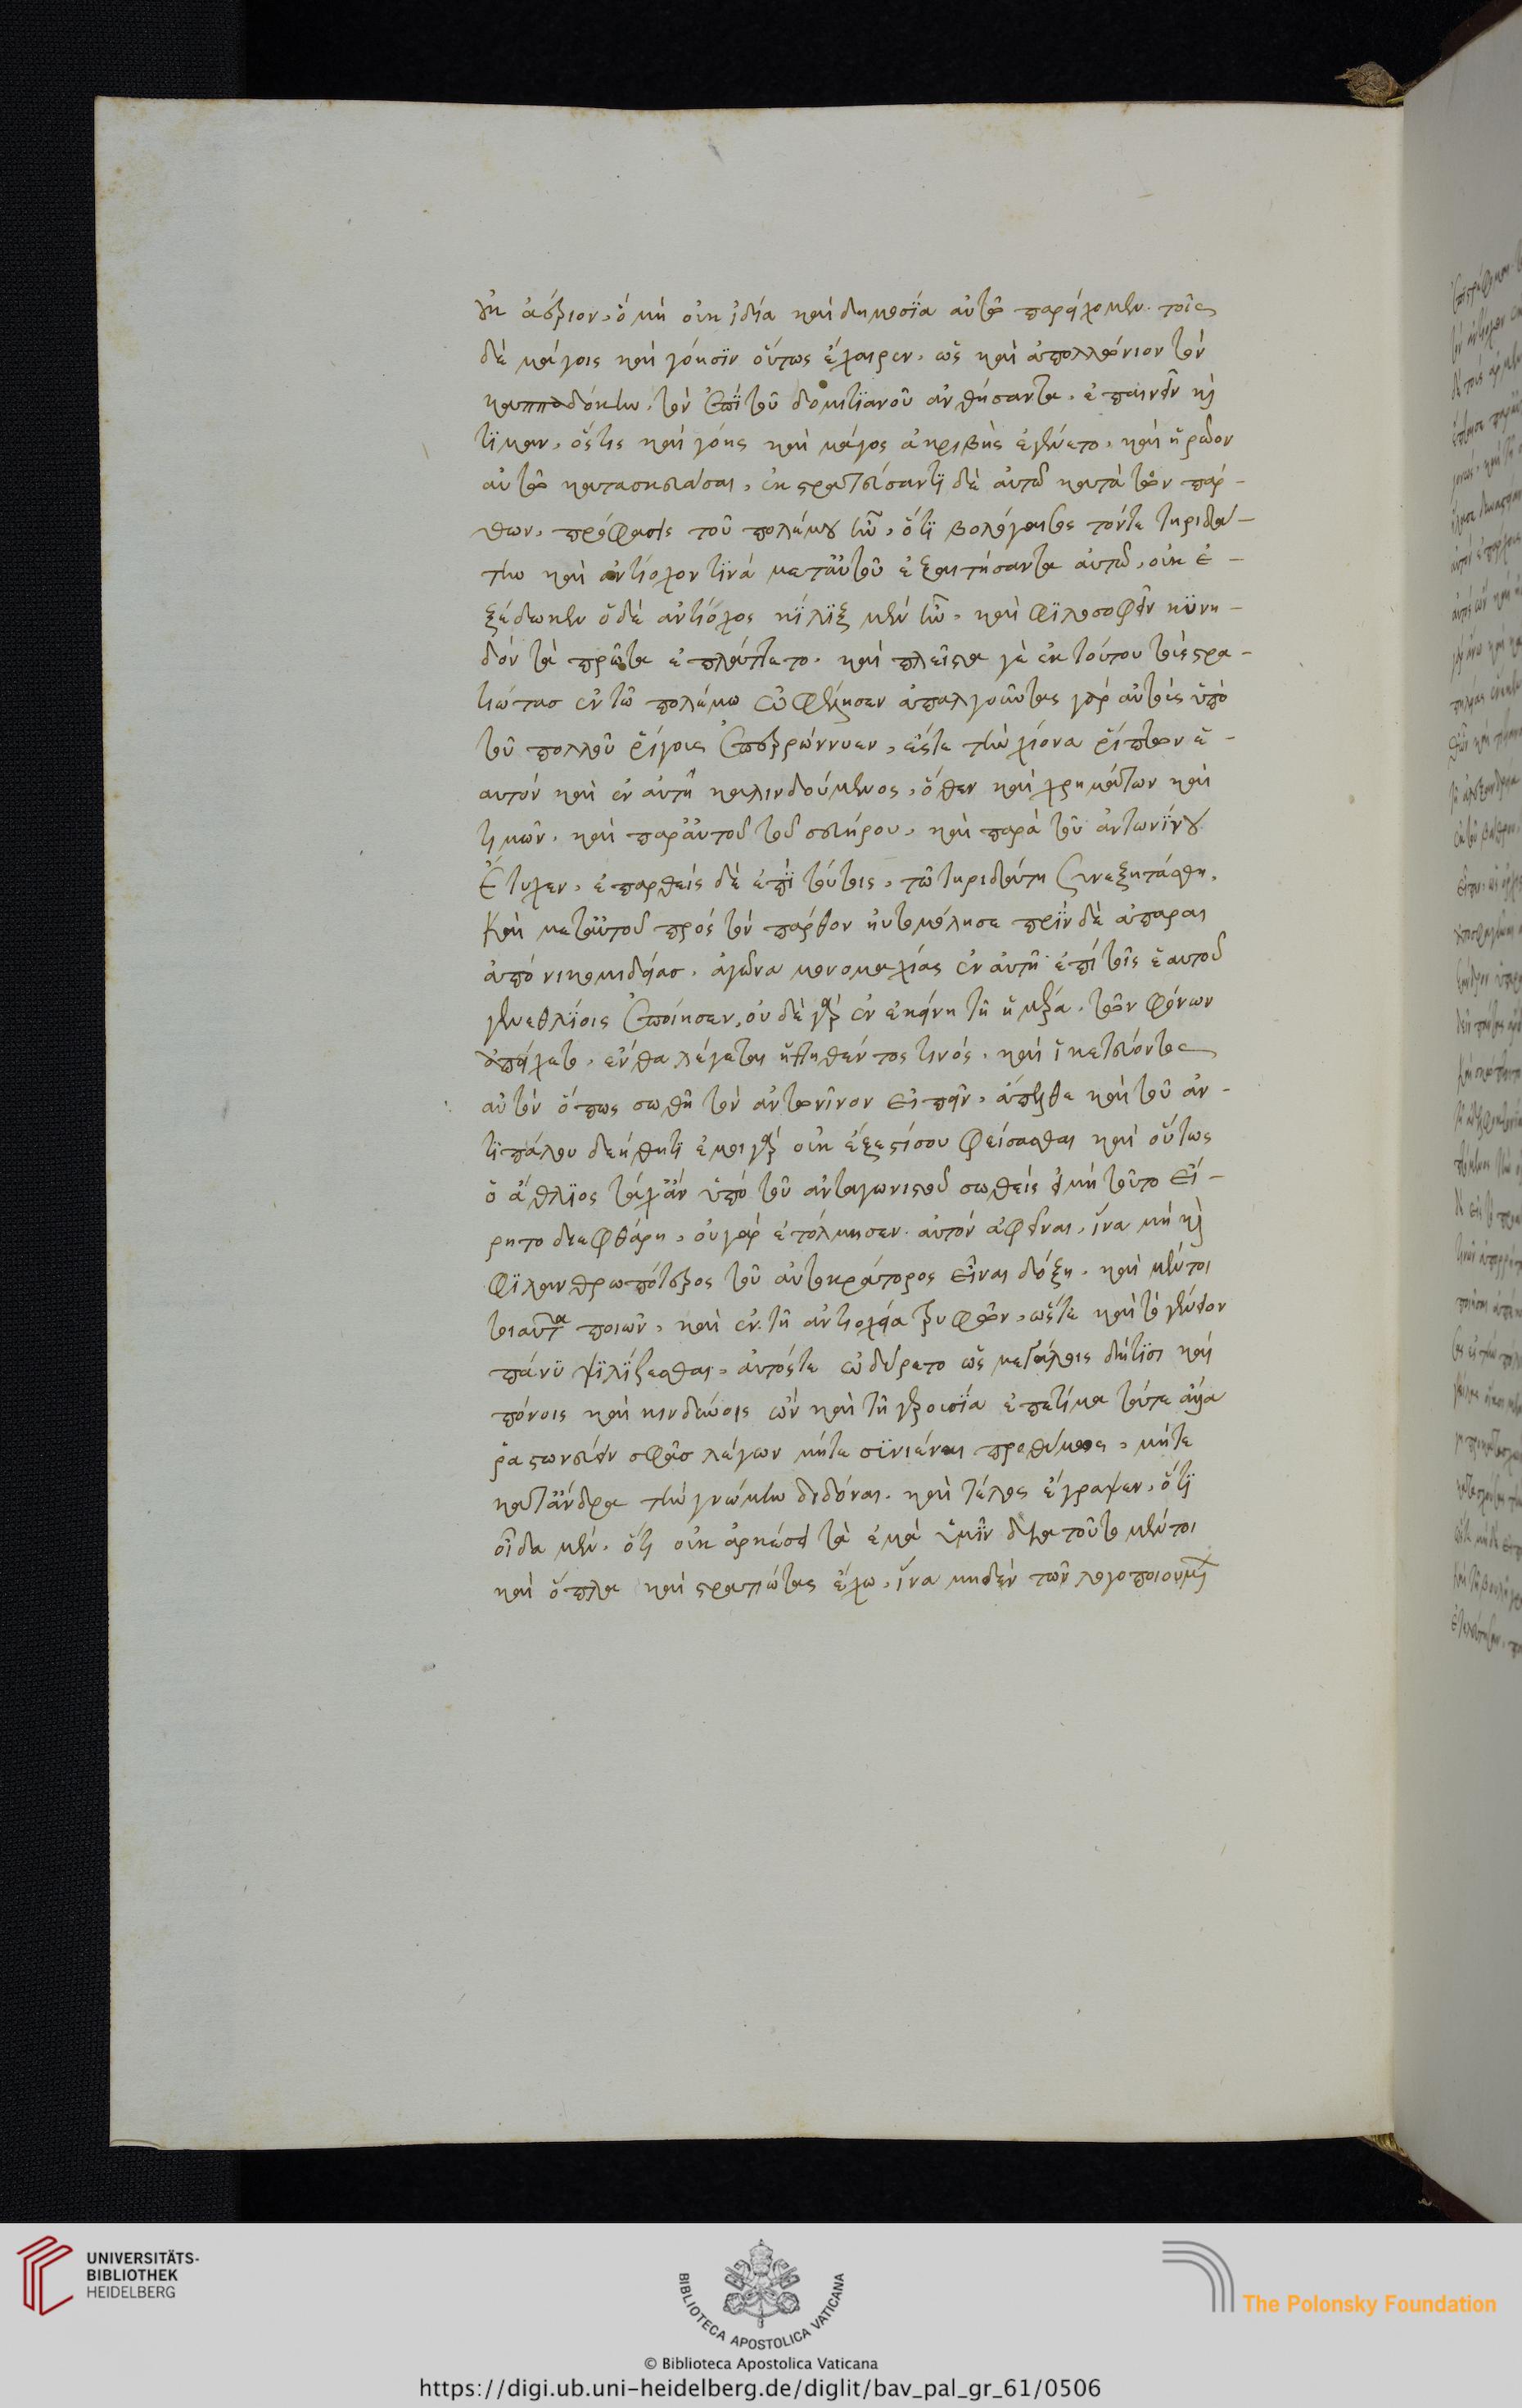 ἄξιον, ὃ μὴ οὐκ ἰδία καὶ δημοσία αὐτῶ παρείχομεν. τοῖς
δὲ μάγοις καὶ γόησιν οὕτως ἔχαιρεν, ὡς καὶ ἀπολλώνιον τὸν
καππαδόκην, τὸν ἐπὶ τοῦ δομιτϊανοῦ ἀνθήσαντα, ἐπαινεῖν κὶ
τϊμαν, ὅςτις καὶ γόης καὶ μάγος ἀκριβὴς ἐγένετο, καὶ ἡρῶον
αὐτῶ κατασκευάσαι, ἐκστρατεύσαντϊ δὲ αὐτῶ κατὰ τῶν πάρ-
θων, πρόφασις τοῦ πολέμου ἦν, ὅτϊ βολόγαισος τόντε τηριδά-
την καὶ ἀντίοχον τϊνά μετ' αὐτοῦ ἐξαιτήσαντα αὐτῶ, οὐκ ἐ-
ξέδωκεν ὁ δὲ ἀντίοχος κίλϊξ μὲν ἦν, καὶ φϊλοσοφεῖν κϋνη-
δόν τὰ πρῶτα ἐπλάττετο. καὶ πλεῖστα γὲ ἐκ τούτου τοὺς στρα-
τιώτασ ἐν τῶ πολέμω ὠφέλησεν ἀπαλγοῦντας γάρ αὐτοὺς ὑπὸ
τοῦ πολλοῦ ῥίγους ἐπερρώννυεν, εἴςτε τὴν χίονα ῥίπτων ἑ-
αυτόν καὶ ἐν αὐτῆ καλινδούμενος, ὅθεν καὶ χρημάτων καὶ
τιμῶν, καὶ παρ' αὐτοῦ τοῦ σευήρου, καὶ παρὰ τοῦ ἀντωνίνου
ἔτυχεν, ἐπαρθεὶς δὲ ἐπὶ τούτοις, τῶ τηριδάτη συνεξητάσθη,
καὶ μετ' αὐτοῦ πρός τὸν πάρθον ηὐτομόλησε πρὶν δὲ ἀπαραι
ἀπὸ νικομιδείασ, ἀγῶνα μονομαχίας ἐν αὐτῆ ἐπὶ τοῖς ἑαυτοῦ
γενεθλίοις ἐποίησεν, οὐ δὲ γὰρ ἐν ἐκείνη τῆ ἡμέρα, τῶν φόνων
ἀπείχετο, ἔνθα λέγεται ἡττηθέντος τινός, καὶ ἱκετεύοντος
αὐτὸν ὅπως σωθῆ τὸν ἀντωνῖνον εἰπεῖν, ἄπελθε καὶ τοῦ ἀν-
τιπάλου δεήθητϊ ἐμοι γὰρ οὐκ ἔξεστί σου φείσασθαι καὶ οὕτως
ὁ ἄθλϊος τάχ' ἂν ὑπὸ τοῦ ἀνταγωνιστοῦ σωθείς εἰ μὴ τοῦτο εἴ-
ρητο διεφθάρη, οὐ γάρ ἐτόλμησεν αὐτόν ἀφεῖναι, ἵνα μὴ κὶ
φϊλανθρωπότερος τοῦ αὐτοκράτορος εἶναι δόξη. καὶ μέντοι
τοιαῦτα ποιῶν, καὶ ἐν τῆ ἀντιοχεία τρυφῶν, ὥςτε καὶ τὸ γένειον
πάνϋ ψϊλίζεσθαι, αὐτόςτε ὠδύρετο ὡς μεγάλοις δήτϊσι καὶ
πόνοις καὶ κινδύνοις ὢν καὶ τῆ γερουσία ἐπετίμα τάτε ἄλλα
ῥαστωνεύειν σφᾶσ λέγων μήτε σϋνιέναι προθύμως, μήτε
κατ' ἄνδρα τὴν γνώμην διδόναι. καὶ τέλος ἔγραψεν, ὅτϊ
οἶδα μὲν, ὅτι οὐκ ἀρέσκει τὰ ἐμὰ ὑμῖν διὰ τοῦτο μέντοι
καὶ ὅπλα καὶ στρατιώτας ἔχω, ἵνα μηδὲν τῶν λογοποιουμένων
UNIVERSITÄTS-
BIBLIOTHEK
HEIDELBERG
BIBLIOTECA APOSTOLICA VATICANA
© Biblioteca Apostolica Vaticana
The Polonsky Foundation
https://digi.ub.uni-heidelberg.de/diglit/bav_pal_gr_61/0506